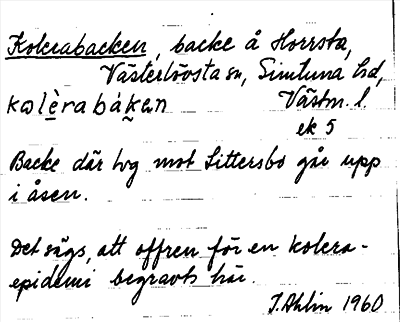 Kolerabacken, backe å Horrsta,
Västerlövsta sn, Simtuna hd,
kolèrabákan Västm. l.
ek 5
Backe där väg mot Sittersbo går upp
i åsen.
Det sägs, att offren för en kolera-
epidemi begravts här.
I. Ahlin 1960